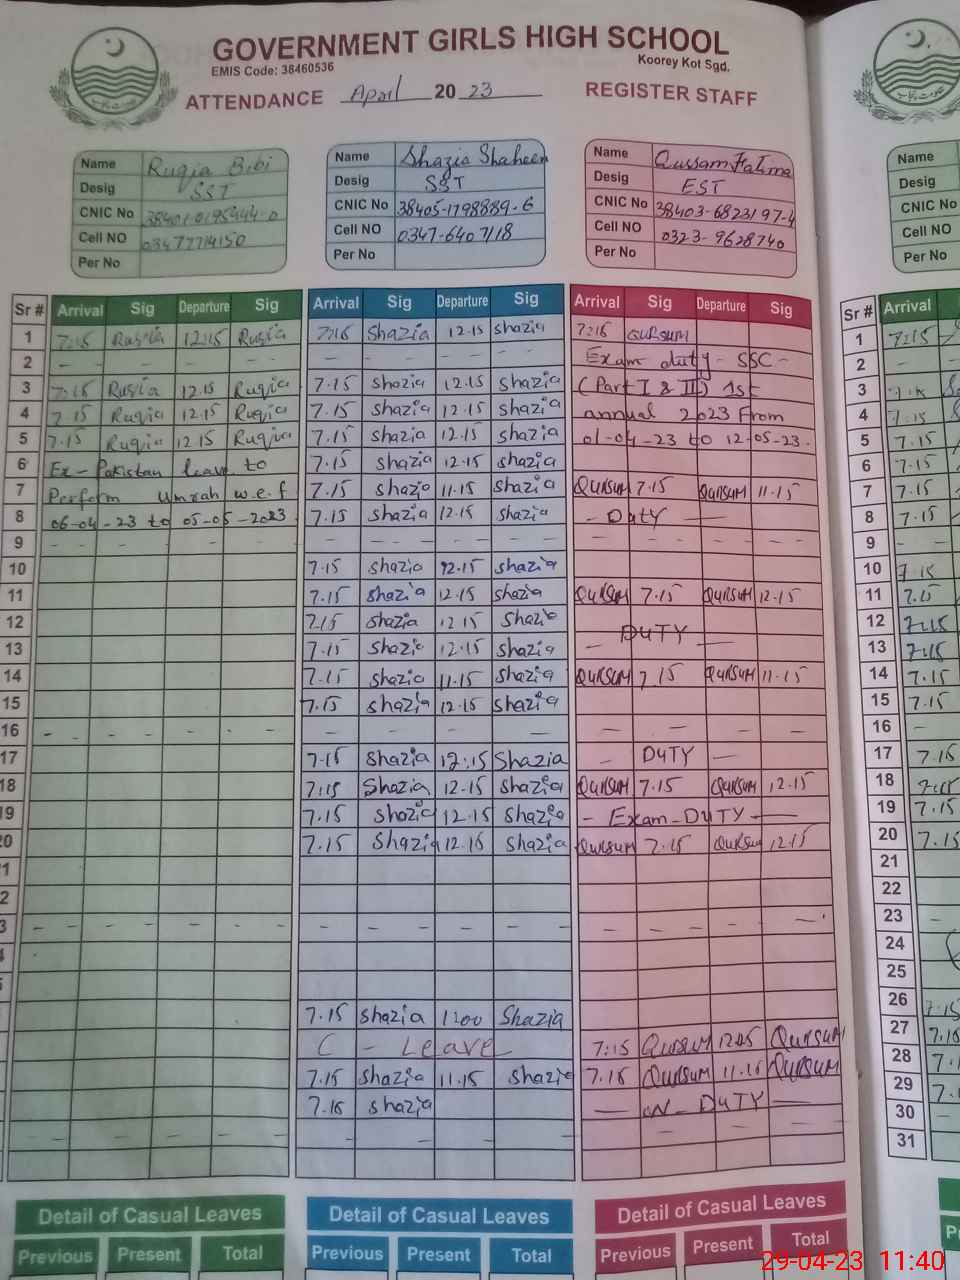 GOVERNMENT GIRLS HIGH SCHOOL
EMIS Code: 38460536 Koorey Kot Sgd.
ATTENDANCE April 20 23 REGISTER STAFF
Name Ruqia Bibi
Desig SST
CNIC No 38401-0195444-0
Cell NO 03477714150
Per No
Name Shazia Shaheen
Desig SST
CNIC No 38405-1798889-6
Cell NO 0347-6407118
Per No
Name Qussam Fatima
Desig EST
CNIC No 38403-6823197-4
Cell NO 0323-9628740
Per No
Name
Desig
CNIC No
Cell NO
Per No
Sr # Arrival Sig Departure Sig Arrival Sig Departure Sig Arrival Sig Departure Sig Sr # Arrival
1 7:15 Ruqia 12:15 Ruqia 7:15 Shazia 12.15 shazia 7:15 QURSUM 1 7:15
2 - - - - - - - - Exam duty - SSC - 2 -
3 7:15 Ruqia 12.15 Ruqia 7.15 shazia 12.15 shazia (Part I & II) 1st 3
4 7.15 Ruqia 12.15 Ruqia 7.15 shazia 12.15 shazia annual 2023 From 4 7:15
5 7.15 Ruqia 12.15 Ruqia 7.15 shazia 12.15 shazia 01-04-23 to 12-05-23. 5 7.15
6 Ex-Pakistan leave to 7.15 shazia 12.15 shazia 6 7.15
7 Perform Umrah w.e.f 7.15 shazia 11.15 shazia QURSUM 7.15 QURSUM 11.15 7 7.15
8 06-04-23 to 05-05-2023 7.15 shazia 12.15 shazia - Duty - 8 7.15
9 - - - - - - - - - - - - 9 - -
10 7.15 shazia 12.15 shazia 10 7.15
11 7.15 shazia 12.15 shazia QURSUM 7.15 QURSUM 12.15 11 7.15
12 7.15 shazia 12.15 shazia 12 7:15
13 7.15 shazia 12.15 shazia - DUTY - 13 7:15
14 7.15 shazia 11.15 shazia QURSUM 7.15 QURSUM 11.15 14 7.15
15 7.15 shazia 12.15 shazia 15 7.15
16 - - - - - - - - - - - - 16 - -
17 7.15 Shazia 12:15 Shazia - DUTY - 17 7.15
18 7:15 Shazia 12.15 shazia QURSUM 7.15 QURSUM 12.15 18 7:15
19 7.15 shazia 12.15 shazia - Exam-DUTY - 19 7.15
20 7.15 Shazia 12.15 shazia QURSUM 7.15 QURSUM 12.15 20 7.15
1 21
2 22
3 - - - - - - - - - 23 -
24
25
7.15 shazia 1:00 Shazia 26 7:15
C - Leave 7:15 QURSUM QURSUM 27
7.15 shazia 11.15 shazia 7.15 QURSUM 11.15 QURSUM 28
7.15 shazia - ON - DUTY - 29
- - - - - - - - - - - - 30
31
Detail of Casual Leaves Detail of Casual Leaves Detail of Casual Leaves
Previous Present Total Previous Present Total Previous Present Total
29-04-23 11:40